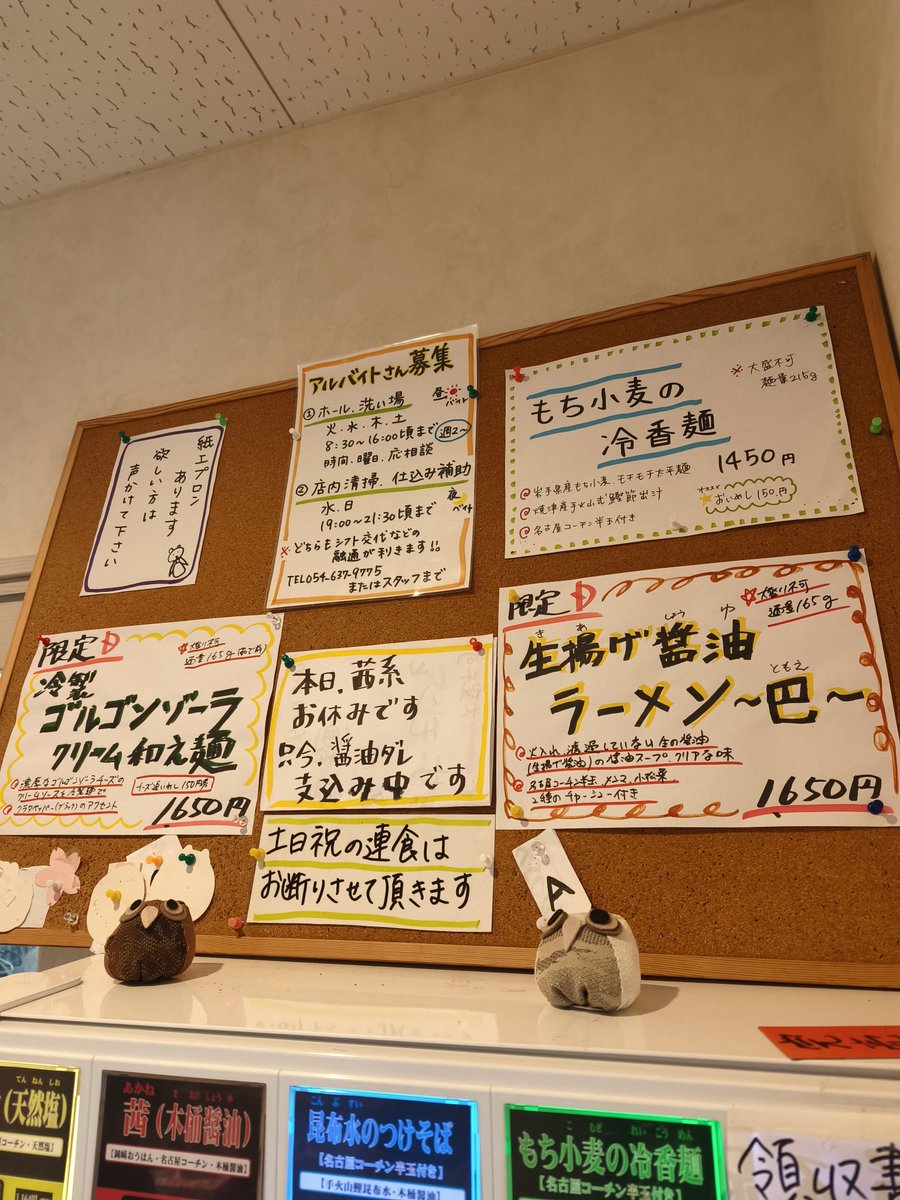 紙エプロン
あります
欲しい方は
声かけて下さい
アルバイトさん募集
① ホール、洗い場
昼バイト
火.水.木.土
8:30〜16:00頃まで
週2〜
時間.曜日.応相談
② 店内清掃、仕込み補助
水.日
夜バイト
19:00〜21:30頃まで
※どちらもシフト交代などの
融通が利きます!!
TEL054-637-9775
またはスタッフまで
もち小麦の
冷香麺
※大盛不可
麺量215g
1450円
岩手県産もち小麦 モチモチ太平麺
焼津産手火山式鰹節出汁
名古屋コーチン半玉付き
オススメ
おいめし150円
限定
冷製
ゴルゴンゾーラ
クリーム和え麺
濃厚なゴルゴンゾーラチーズの
クリームソースを冷製麺で
1,650円
本日.茜系
お休みです
只今.醤油ダレ
支込み中です
土日祝の連食は
お断りさせて頂きます
限定
大盛り不可
麺量165g
生揚げ醤油
きあ しょうゆ
ラーメン〜巴〜
ともえ
火入れ、濾過していない生の醤油
(生揚げ醤油)の醤油スープ.クリアな味
名古屋コーチン半玉、メンマ、小松菜
2種のチャーシュー付き
1,650円
A
てんねんしお
(天然塩)
コーチン・天然塩】
あかね きおけしょうゆ
茜(木桶醤油)
【岡崎おうはん・名古屋コーチン・木桶醤油】
こんぶすい
昆布水のつけそば
【名古屋コーチン半玉付き】
【手火山鰹昆布水・木桶醤油】
こむぎ れいこうめん
もち小麦の冷香麺
【名古屋コーチン半玉付き】
領収書